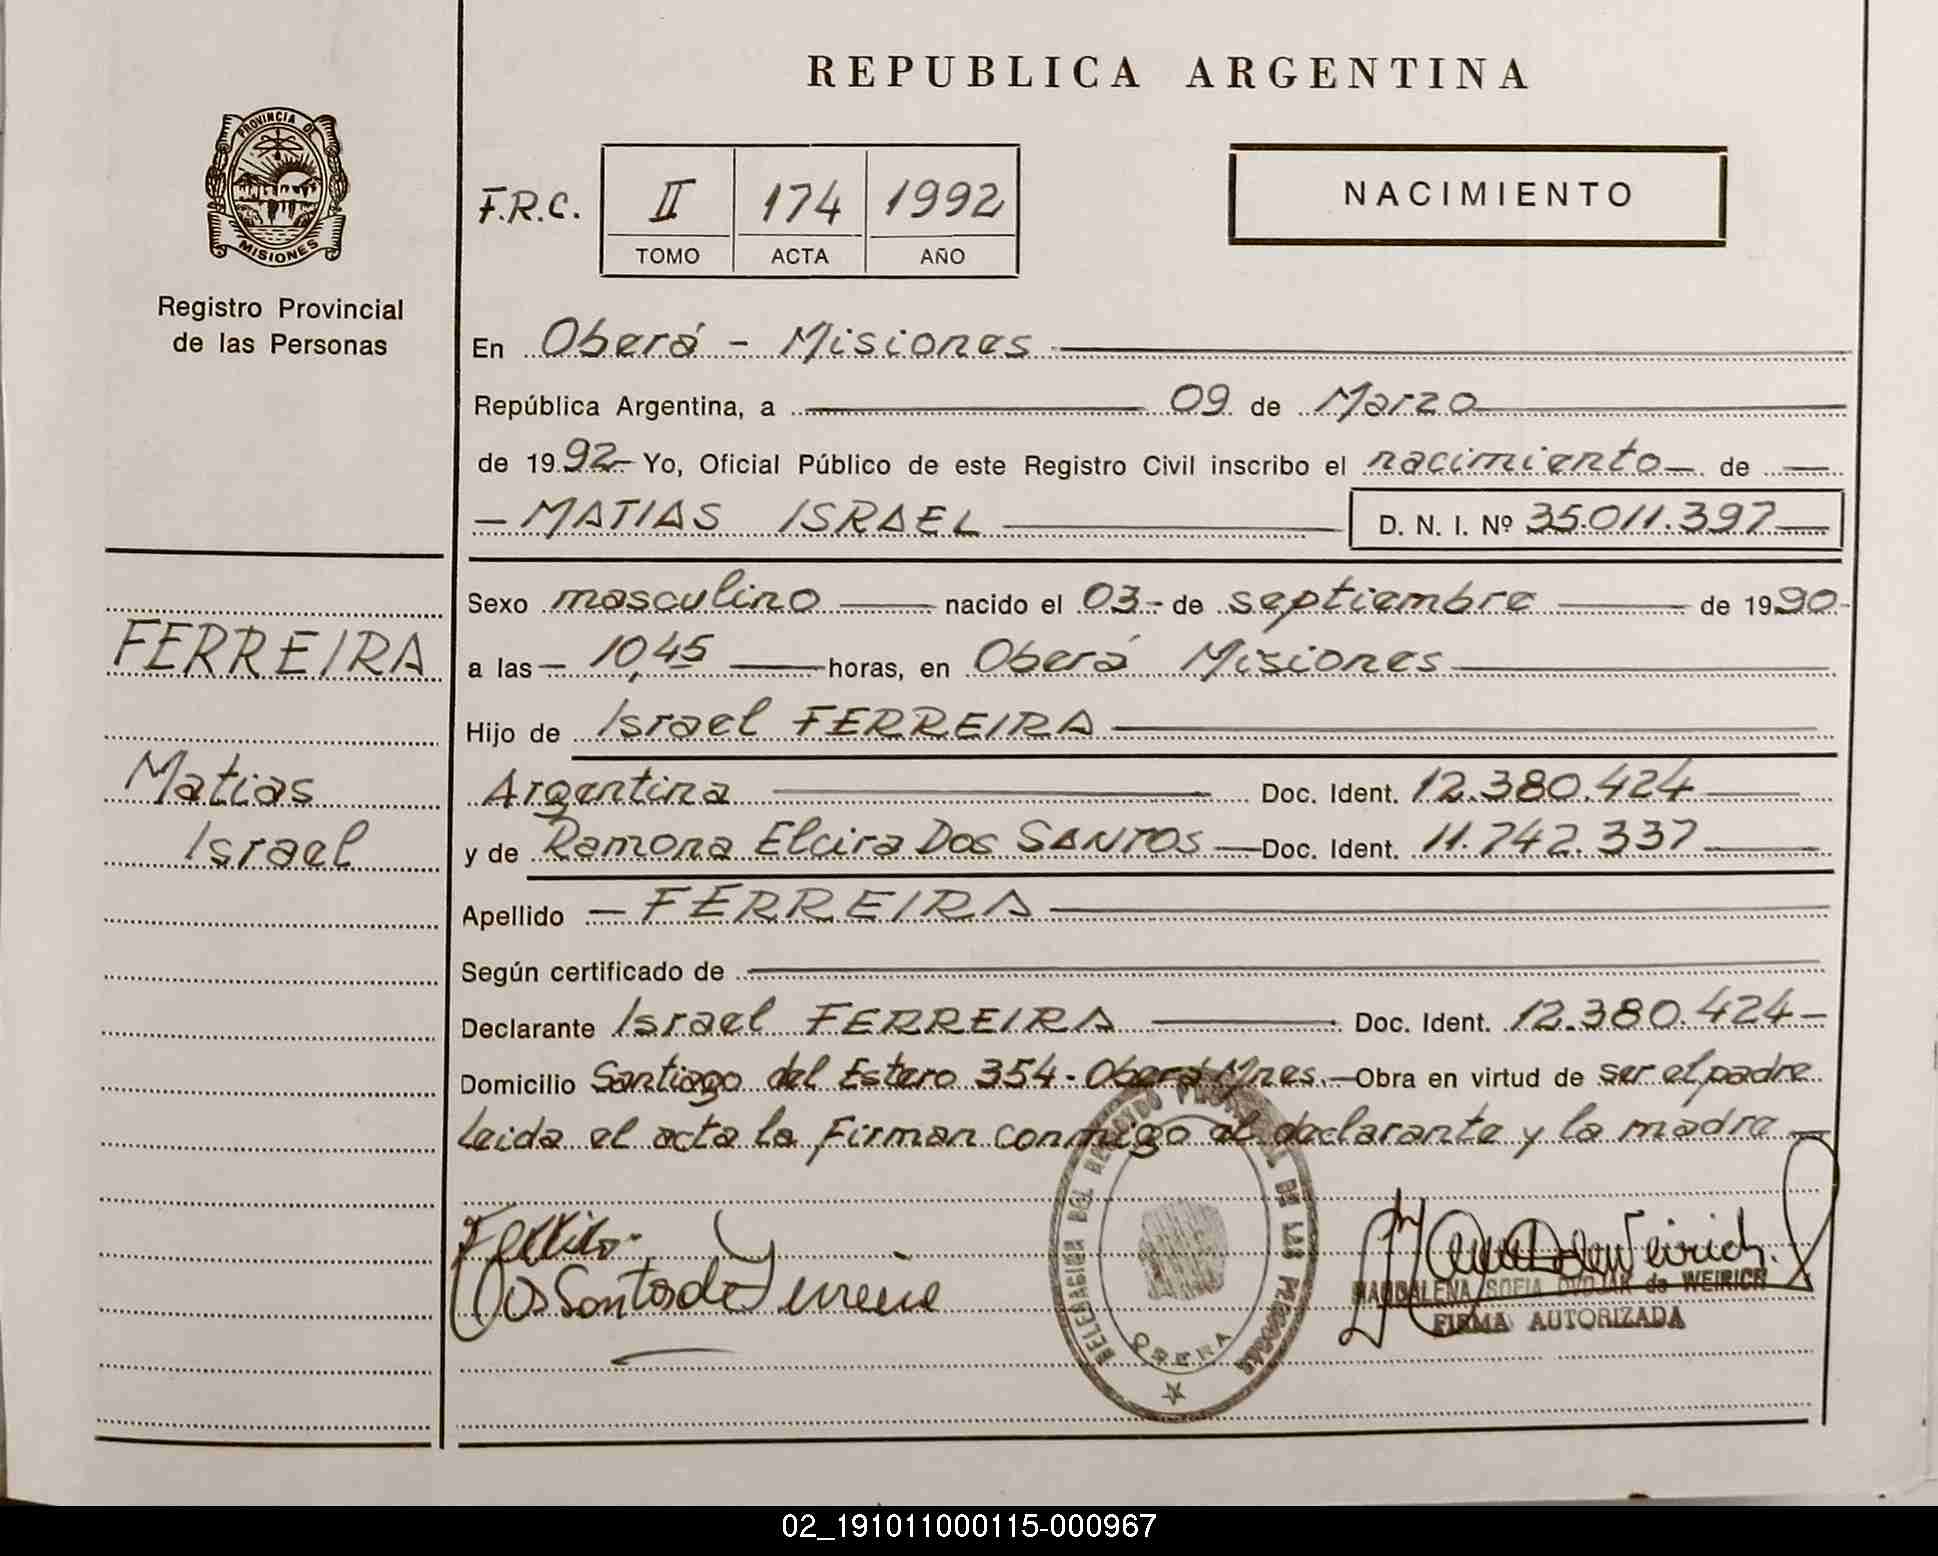 REPUBLICA ARGENTINA
PROVINCIA DE
MISIONES
Registro Provincial
de las Personas
F.R.C. II 174 1992
TOMO ACTA AÑO
NACIMIENTO
En Oberá - Misiones
República Argentina, a 09 de Marzo
de 1992 Yo, Oficial Público de este Registro Civil inscribo el nacimiento de
MATIAS ISRAEL D. N. I. Nº 35.011.397
Sexo masculino nacido el 03 de septiembre de 1990
a las 10,45 horas, en Oberá Misiones
Hijo de Israel FERREIRA
Argentina Doc. Ident. 12.380.424
y de Ramona Elcira Dos SANTOS Doc. Ident. 11.742.337
Apellido FERREIRA
Según certificado de
Declarante Israel FERREIRA Doc. Ident. 12.380.424
Domicilio Santiago del Estero 354 - Oberá Mnes. Obra en virtud de ser el padre
Leida el acta la firman conmigo el declarante y la madre
FERREIRA
Matias
Israel
Dos Santos de Ferreira
DELEGACION DEL REGISTRO PROVINCIAL DE LAS PERSONAS
OBERA
MAGDALENA SOFIA DVOJAK de WEIRICH
FIRMA AUTORIZADA
02_191011000115-000967